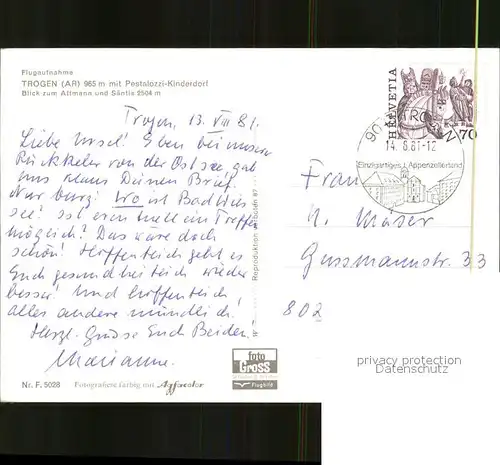 Flugaufnahme
TROGEN (AR) 965 m mit Pestalozzi-Kinderdorf
Blick zum Altmann und Säntis 2504 m
Trogen, 13. VIII 81.
Liebe Ursel! Eben bei unserer
Rückkehr von der Ostsee gab
uns Klaus Deinen Brief.
Nur kurz: Wo ist Bad
see? Ist eventuell ein Treffen
möglich? Das wäre doch
schön! Hoffentlich geht es
Euch gesundheitlich wieder
besser! Und hoffentlich
alles andere mündlich!
Herzl. Grüsse Euch Beiden!
Marianne.
Nr. F. 5028
Fotografiert farbig mit Agfacolor
foto
Gross
Flugbild
HELVETIA
70
14.8.81-12
Einzigartiges Appenzellerland
Frau
Gussmannstr. 33
802
privacy protection
Datenschutz